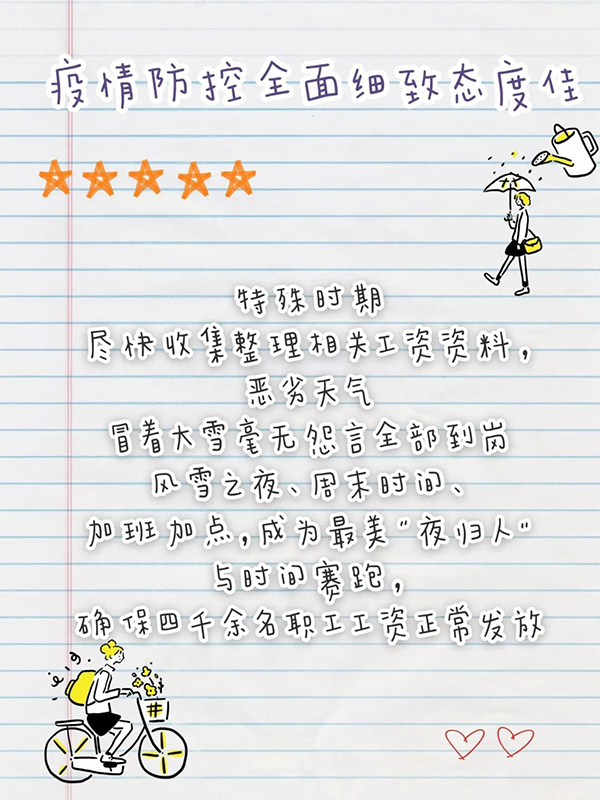 疫情防控全面细致态度佳
特殊时期
尽快收集整理相关工资资料，
恶劣天气
冒着大雪毫无怨言全部到岗
风雪之夜、周末时间、
加班加点，成为最美“夜归人”
与时间赛跑，
确保四千余名职工工资正常发放